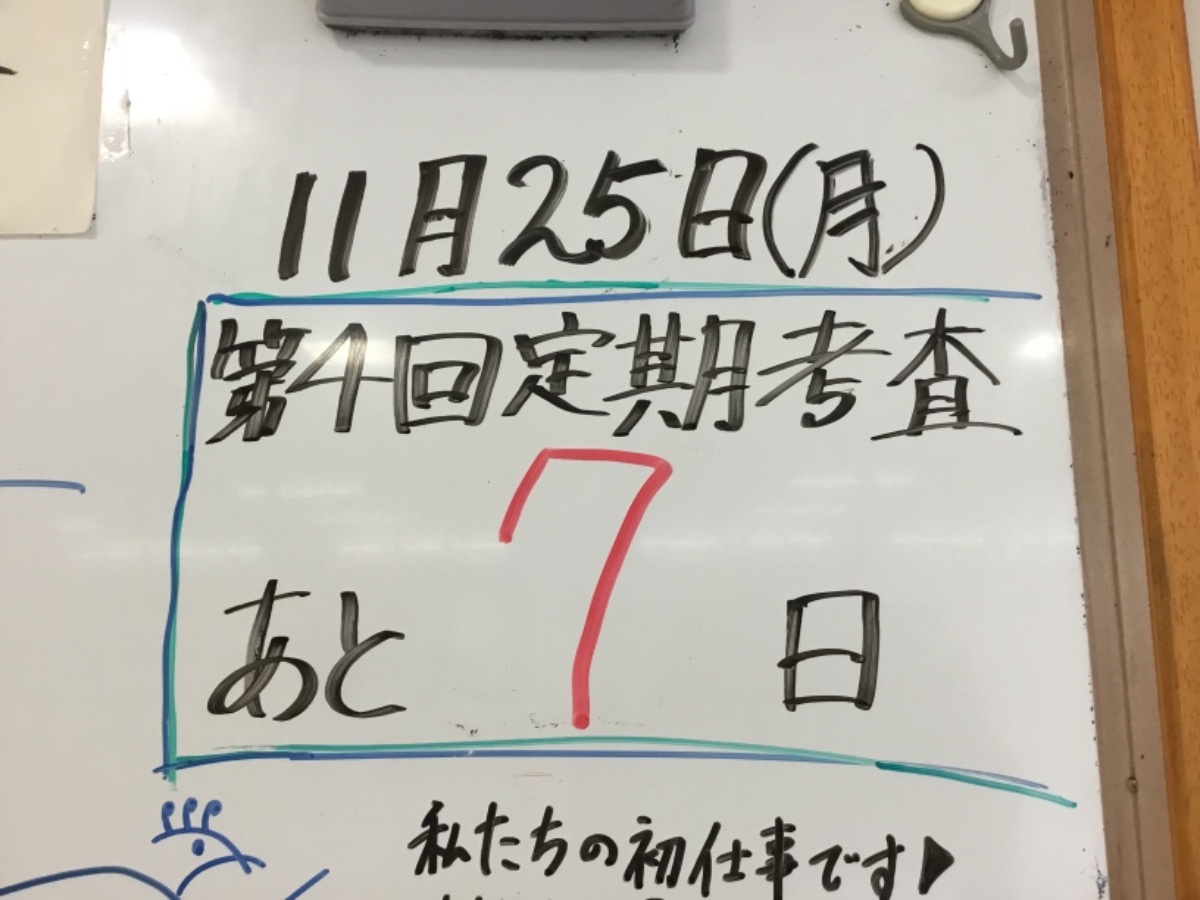 11月25日(月)
第4回定期考査
あと 7 日
私たちの初仕事です▶